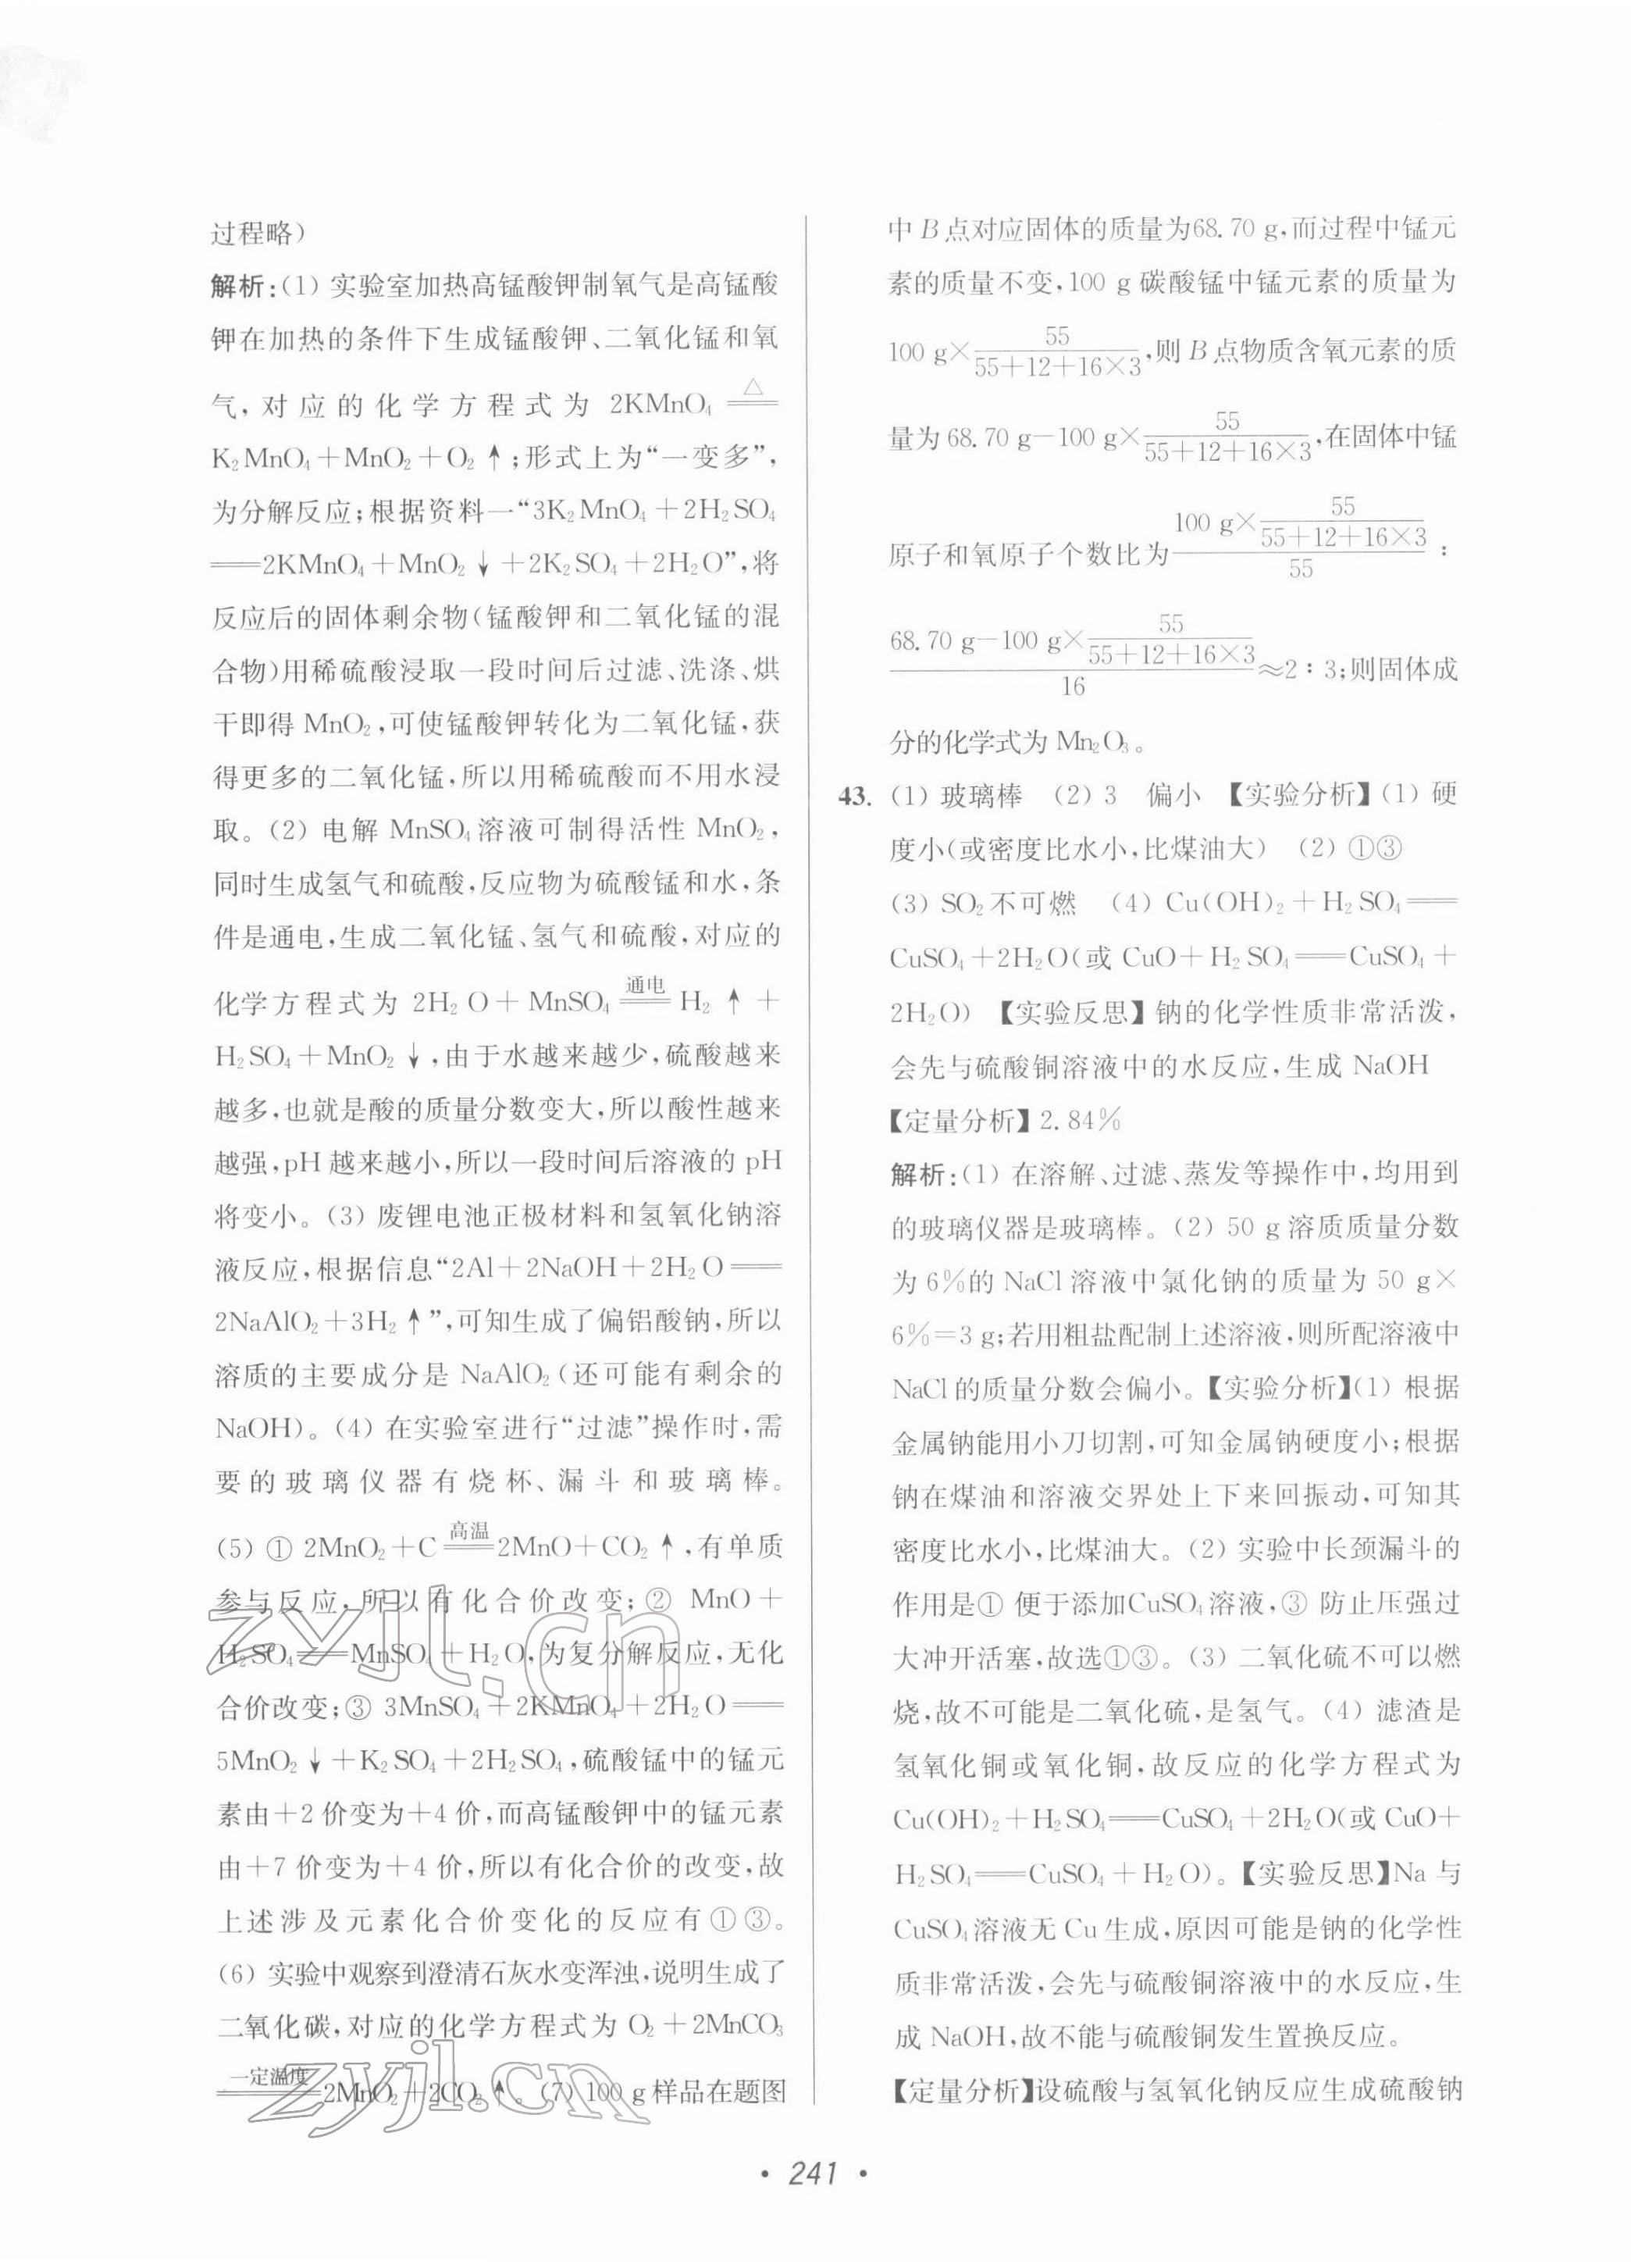 过程略)
解析:(1) 实验室加热高锰酸钾制氧气是高锰酸
钾在加热的条件下生成锰酸钾、二氧化锰和氧
气,对应的化学方程式为 2KMnO₄ =△=
K₂MnO₄+MnO₂+O₂↑;形式上为“一变多”,
为分解反应;根据资料一“3K₂MnO₄+2H₂SO₄
══2KMnO₄+MnO₂↓+2K₂SO₄+2H₂O”,将
反应后的固体剩余物(锰酸钾和二氧化锰的混
合物)用稀硫酸浸取一段时间后过滤、洗涤、烘
干即得 MnO₂,可使锰酸钾转化为二氧化锰,获
得更多的二氧化锰,所以用稀硫酸而不用水浸
取。(2) 电解 MnSO₄溶液可制得活性 MnO₂,
同时生成氢气和硫酸,反应物为硫酸锰和水,条
件是通电,生成二氧化锰、氢气和硫酸,对应的
化学方程式为 2H₂O+MnSO₄ =通电= H₂↑+
H₂SO₄+MnO₂↓,由于水越来越少,硫酸越来
越多,也就是酸的质量分数变大,所以酸性越来
越强,pH 越来越小,所以一段时间后溶液的 pH
将变小。(3) 废锂电池正极材料和氢氧化钠溶
液反应,根据信息“2Al+2NaOH+2H₂O══
2NaAlO₂+3H₂↑”,可知生成了偏铝酸钠,所以
溶质的主要成分是 NaAlO₂(还可能有剩余的
NaOH)。(4) 在实验室进行“过滤”操作时,需
要的玻璃仪器有烧杯、漏斗和玻璃棒。
(5) ① 2MnO₂+C =高温= 2MnO+CO₂↑,有单质
参与反应,所以有化合价改变;② MnO+
H₂SO₄══MnSO₄+H₂O,为复分解反应,无化
合价改变;③ 3MnSO₄+2KMnO₄+2H₂O══
5MnO₂↓+K₂SO₄+2H₂SO₄,硫酸锰中的锰元
素由+2 价变为+4 价,而高锰酸钾中的锰元素
由+7 价变为+4 价,所以有化合价的改变,故
上述涉及元素化合价变化的反应有①③。
(6) 实验中观察到澄清石灰水变浑浊,说明生成了
二氧化碳,对应的化学方程式为 O₂+2MnCO₃
=一定温度= 2MnO₂+2CO₂↑。(7) 100 g样品在题图
中 B 点对应固体的质量为68.70 g,而过程中锰元
素的质量不变,100 g 碳酸锰中锰元素的质量为
100 g×55/(55+12+16×3),则 B 点物质含氧元素的质
量为 68.70 g-100 g×55/(55+12+16×3),在固体中锰
原子和氧原子个数比为 (100 g×55/(55+12+16×3))/55 :
(68.70 g-100 g×55/(55+12+16×3))/16≈2:3;则固体成
分的化学式为 Mn₂O₃。
43. (1) 玻璃棒 (2) 3 偏小 【实验分析】(1) 硬
度小(或密度比水小,比煤油大) (2) ①③
(3) SO₂不可燃 (4) Cu(OH)₂+H₂SO₄══
CuSO₄+2H₂O(或 CuO+H₂SO₄══CuSO₄+
2H₂O) 【实验反思】钠的化学性质非常活泼,
会先与硫酸铜溶液中的水反应,生成 NaOH
【定量分析】2.84%
解析:(1) 在溶解、过滤、蒸发等操作中,均用到
的玻璃仪器是玻璃棒。(2) 50 g 溶质质量分数
为 6%的 NaCl 溶液中氯化钠的质量为 50 g×
6%=3 g;若用粗盐配制上述溶液,则所配溶液中
NaCl的质量分数会偏小。【实验分析】(1) 根据
金属钠能用小刀切割,可知金属钠硬度小;根据
钠在煤油和溶液交界处上下来回振动,可知其
密度比水小,比煤油大。(2) 实验中长颈漏斗的
作用是① 便于添加CuSO₄溶液,③ 防止压强过
大冲开活塞,故选①③。(3) 二氧化硫不可以燃
烧,故不可能是二氧化硫,是氢气。(4) 滤渣是
氢氧化铜或氧化铜,故反应的化学方程式为
Cu(OH)₂+H₂SO₄══CuSO₄+2H₂O(或 CuO+
H₂SO₄══CuSO₄+H₂O)。【实验反思】Na 与
CuSO₄溶液无 Cu 生成,原因可能是钠的化学性
质非常活泼,会先与硫酸铜溶液中的水反应,生
成 NaOH,故不能与硫酸铜发生置换反应。
【定量分析】设硫酸与氢氧化钠反应生成硫酸钠
· 241 ·
zyjl.cn
zyjl.cn